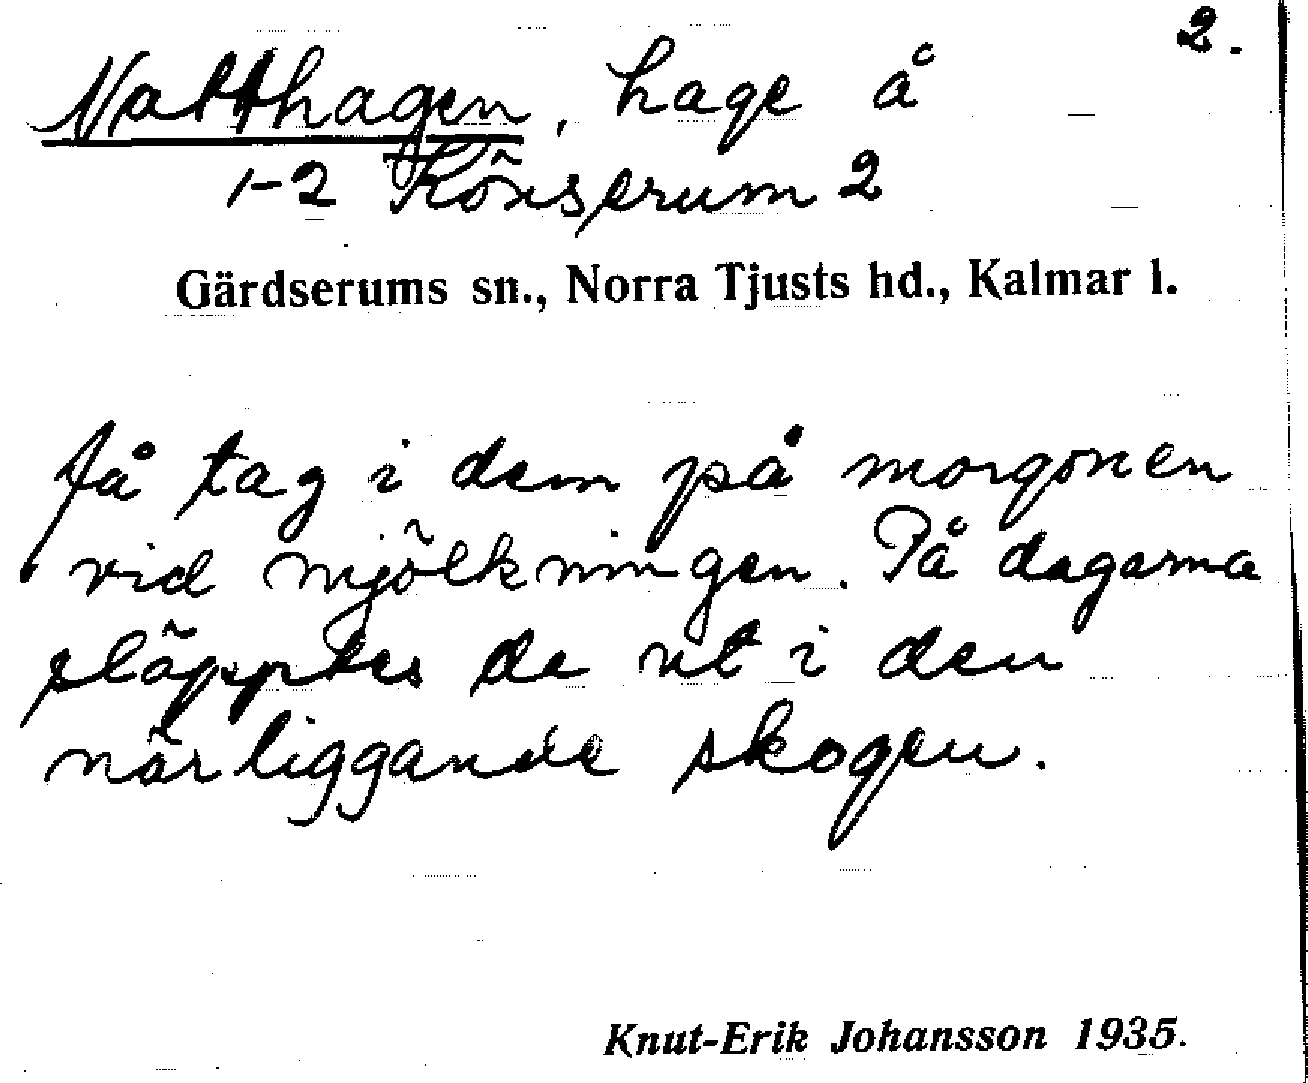 2.
Natthagen, hage å
1-2 Könserum 2
Gärdserums sn., Norra Tjusts hd., Kalmar l.
få tag i dem på morgonen
vid mjölkningen. På dagarna
släpptes de ut i den
närliggande skogen.
Knut-Erik Johansson 1935.